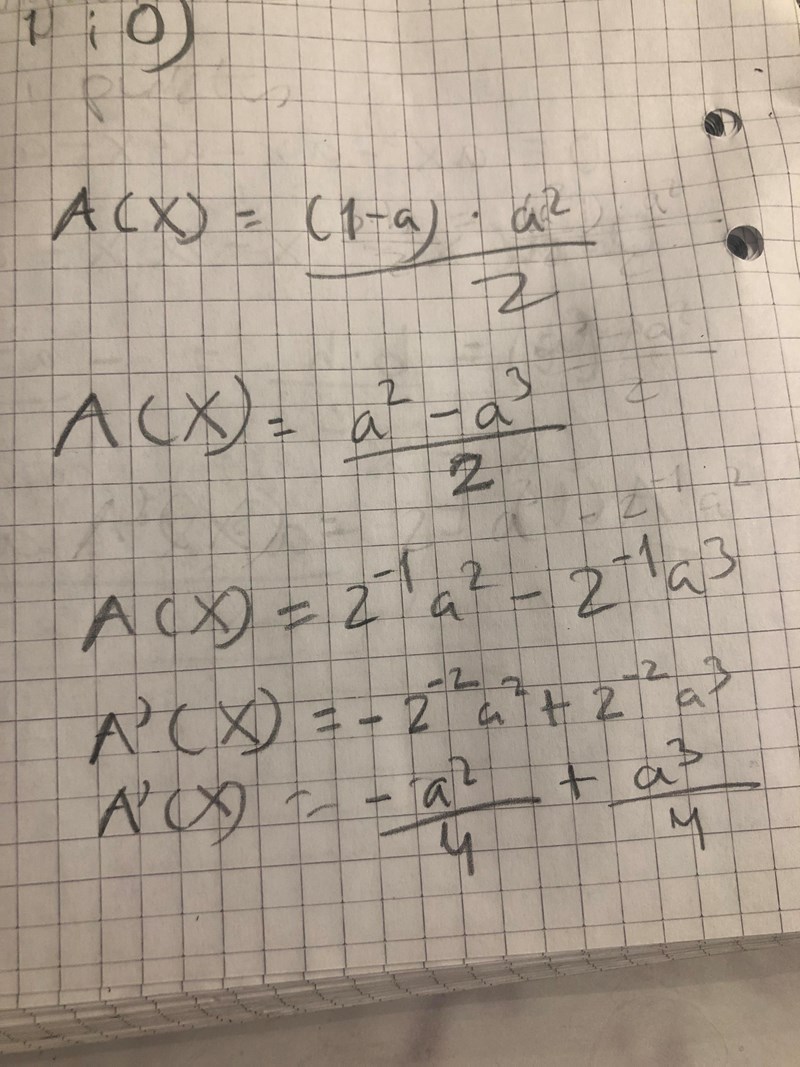 1;0)
A(X) = (1-a) · a² / 2
A(X) = a² - a³ / 2
A(X) = 2⁻¹a² - 2⁻¹a³
A'(X) = -2⁻²a² + 2⁻²a³
A'(X) = -a²/4 + a³/4